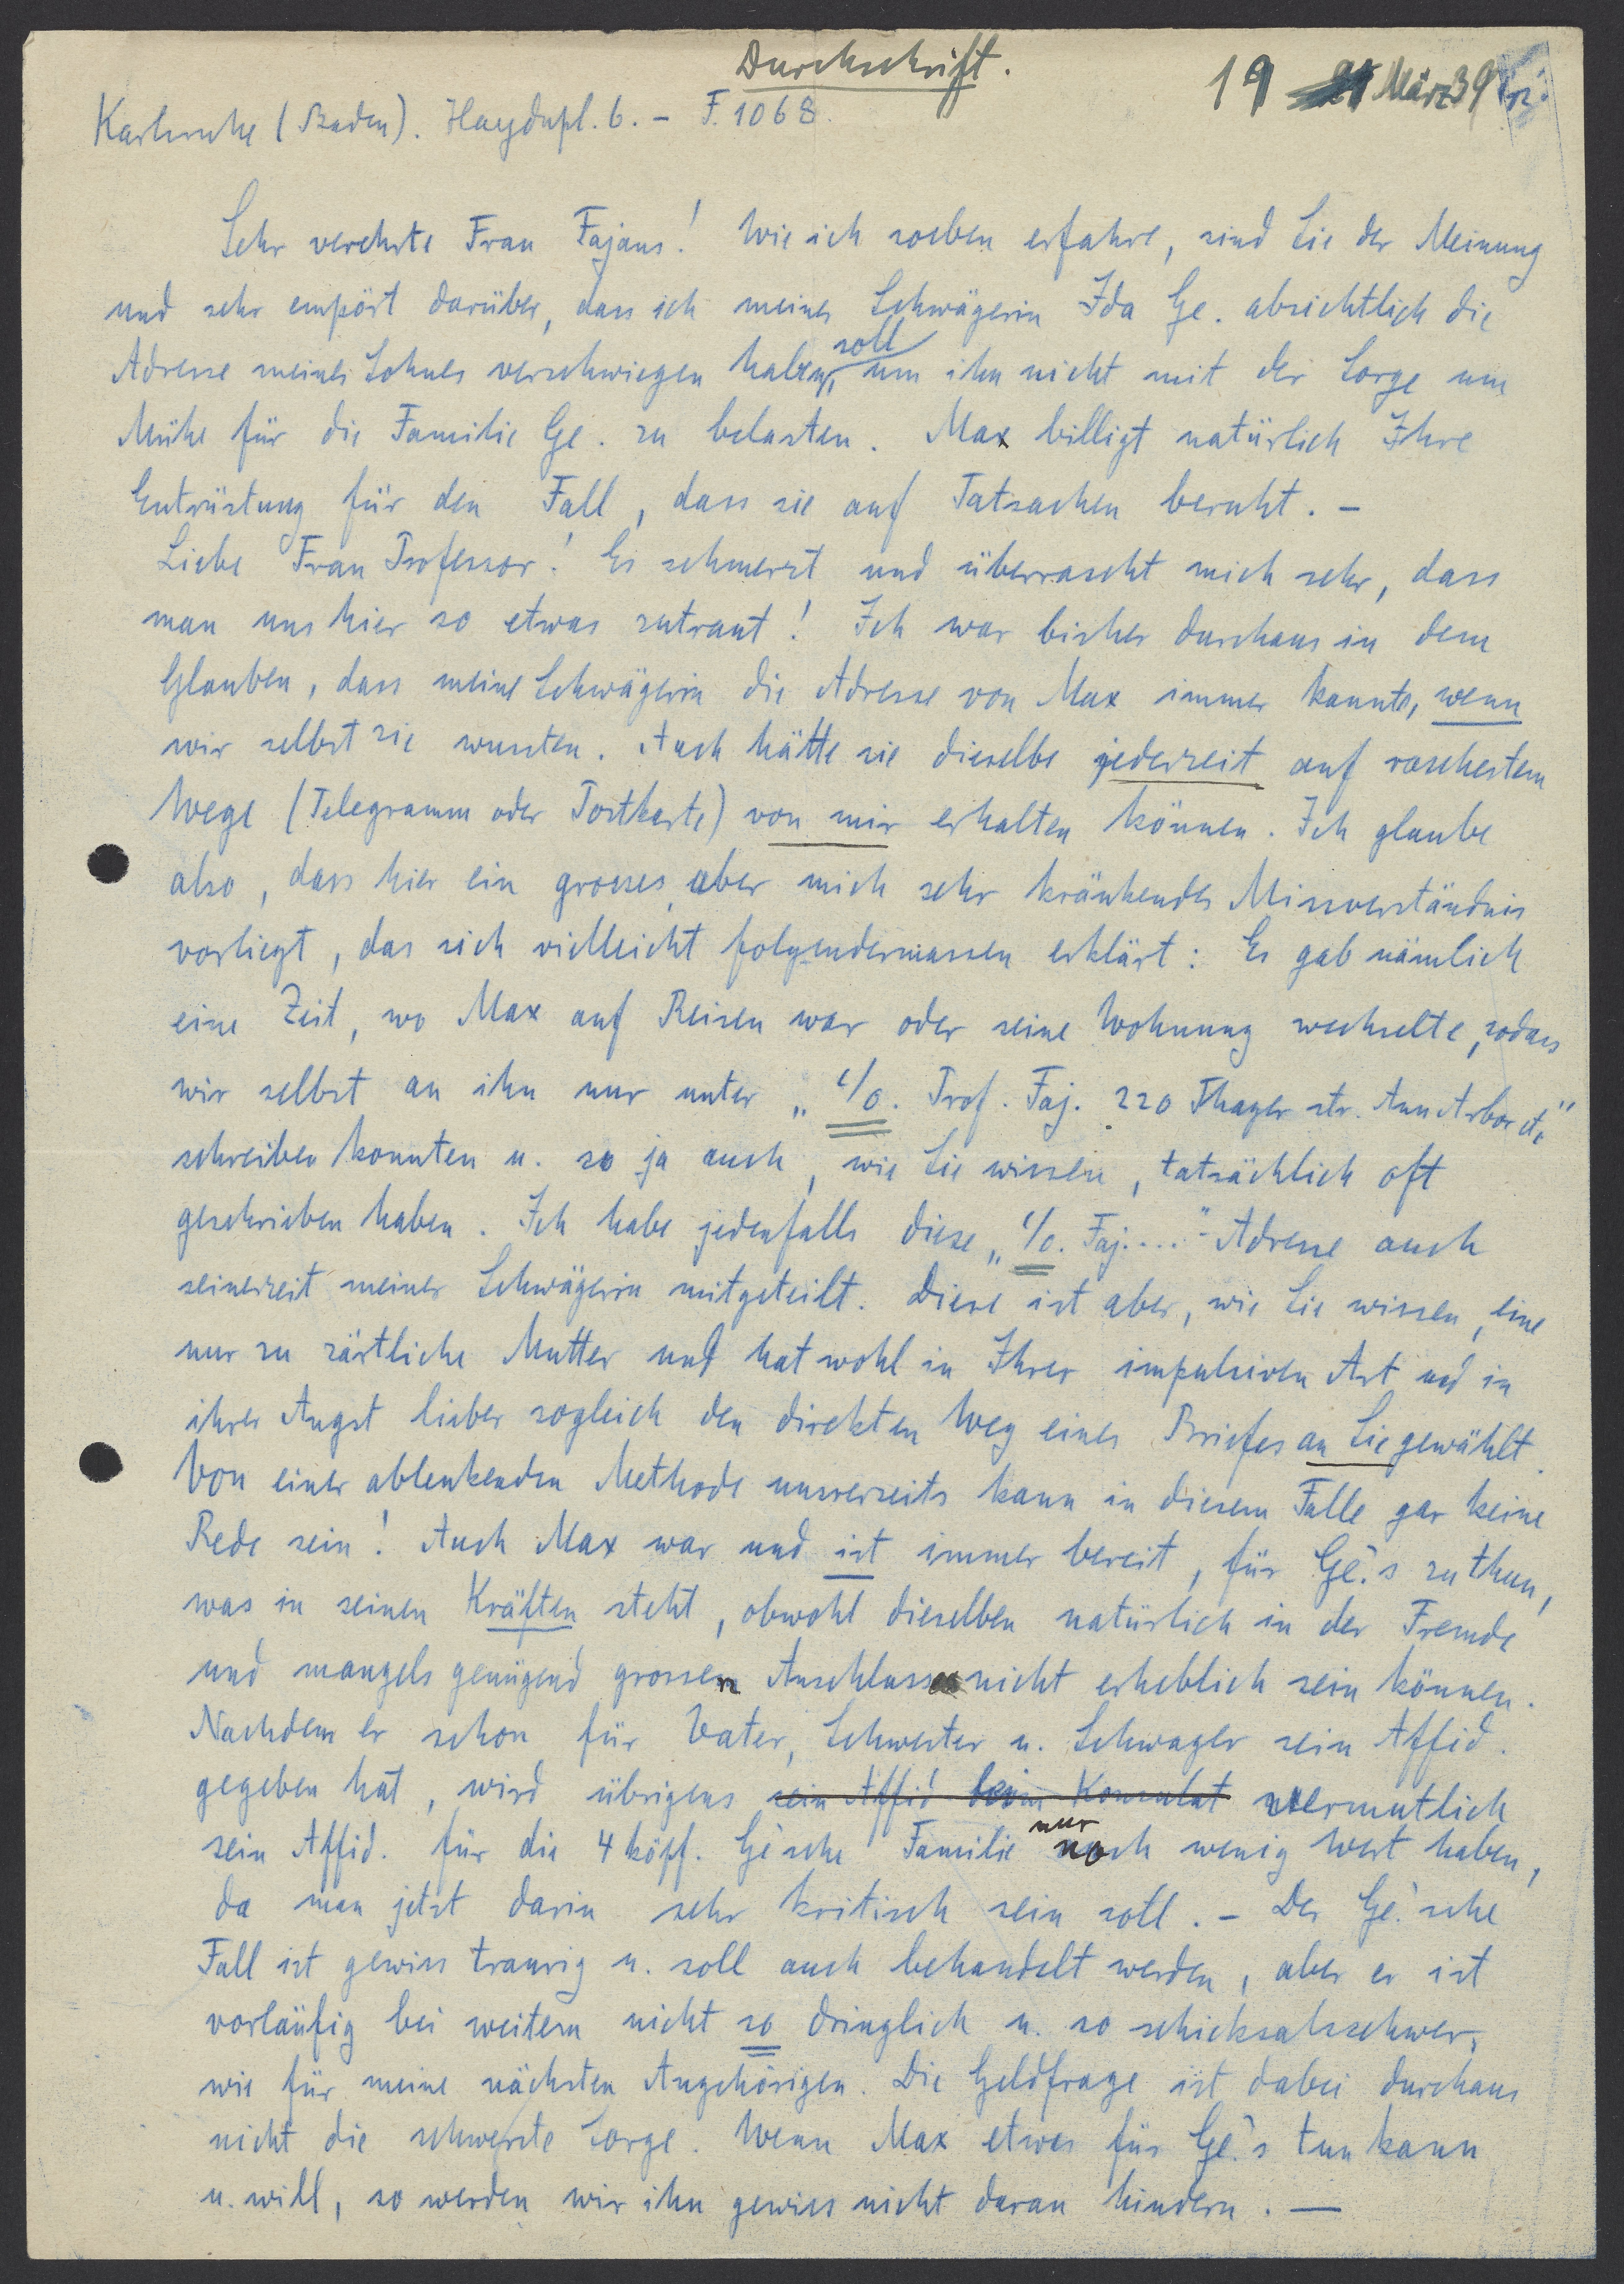 Durchschrift.
19 März 39
Karlsruhe (Baden). Haydnpl. 6. – F. 1068.
Sehr verehrte Frau Fajans! Wie ich soeben erfahre, sind Sie der Meinung
und sehr empört darüber, dass ich meiner Schwägerin Ida Ge. absichtlich die
Adresse meines Sohnes verschwiegen haben soll, um ihn nicht mit der Sorge um
Mühe für die Familie Ge. zu belasten. Max billigt natürlich Ihre
Entrüstung für den Fall, dass sie auf Tatsachen beruht. –
Liebe Frau Professor! Es schmerzt und überrascht mich sehr, dass
man uns hier so etwas zutraut! Ich war bisher durchaus in dem
Glauben, dass meine Schwägerin die Adresse von Max immer kannte, wenn
wir selbst sie wussten. Auch hätte sie dieselbe jederzeit auf raschestem
Wege (Telegramm oder Postkarte) von mir erhalten können. Ich glaube
also, dass hier ein grosses, aber mich sehr kränkendes Missverständnis
vorliegt, das sich vielleicht folgendermassen erklärt: Es gab nämlich
eine Zeit, wo Max auf Reisen war oder seine Wohnung wechselte, sodass
wir selbst an ihn nur unter „c/o. Prof. Faj. 220 Thayer str. Ann Arbor etc"
schreiben konnten u. so ja auch, wie Sie wissen, tatsächlich oft
geschrieben haben. Ich habe jedenfalls diese „c/o. Faj...."-Adresse auch
seinerzeit meiner Schwägerin mitgeteilt. Diese ist aber, wie Sie wissen, eine
nur zu zärtliche Mutter und hat wohl in Ihrer impulsiven Art und in
ihrer Angst lieber sogleich den direkten Weg eines Briefes an Sie gewählt.
Von einer ablenkenden Methode unsererseits kann in diesem Falle gar keine
Rede sein! Auch Max war und ist immer bereit, für Ge.'s zu thun,
was in seinen Kräften steht, obwohl dieselben natürlich in der Fremde
und mangels genügend grossen Anschlusses nicht erheblich sein können.
Nachdem er schon für Vater, Schwester u. Schwager sein Affid.
gegeben hat, wird übrigens sein Affid beim Konsulat vermutlich
sein Affid. für die 4 köpf. Ge'sche Familie nur noch wenig Wert haben,
da man jetzt darin sehr kritisch sein soll. – Der Ge.'sche
Fall ist gewiss traurig u. soll auch behandelt werden, aber er ist
vorläufig bei weitem nicht so dringlich u. so schicksalsschwer,
wie für meine nächsten Angehörigen. Die Geldfrage ist dabei durchaus
nicht die schwerste Sorge. Wenn Max etwas für Ge.'s tun kann
u. will, so werden wir ihn gewiss nicht daran hindern. —